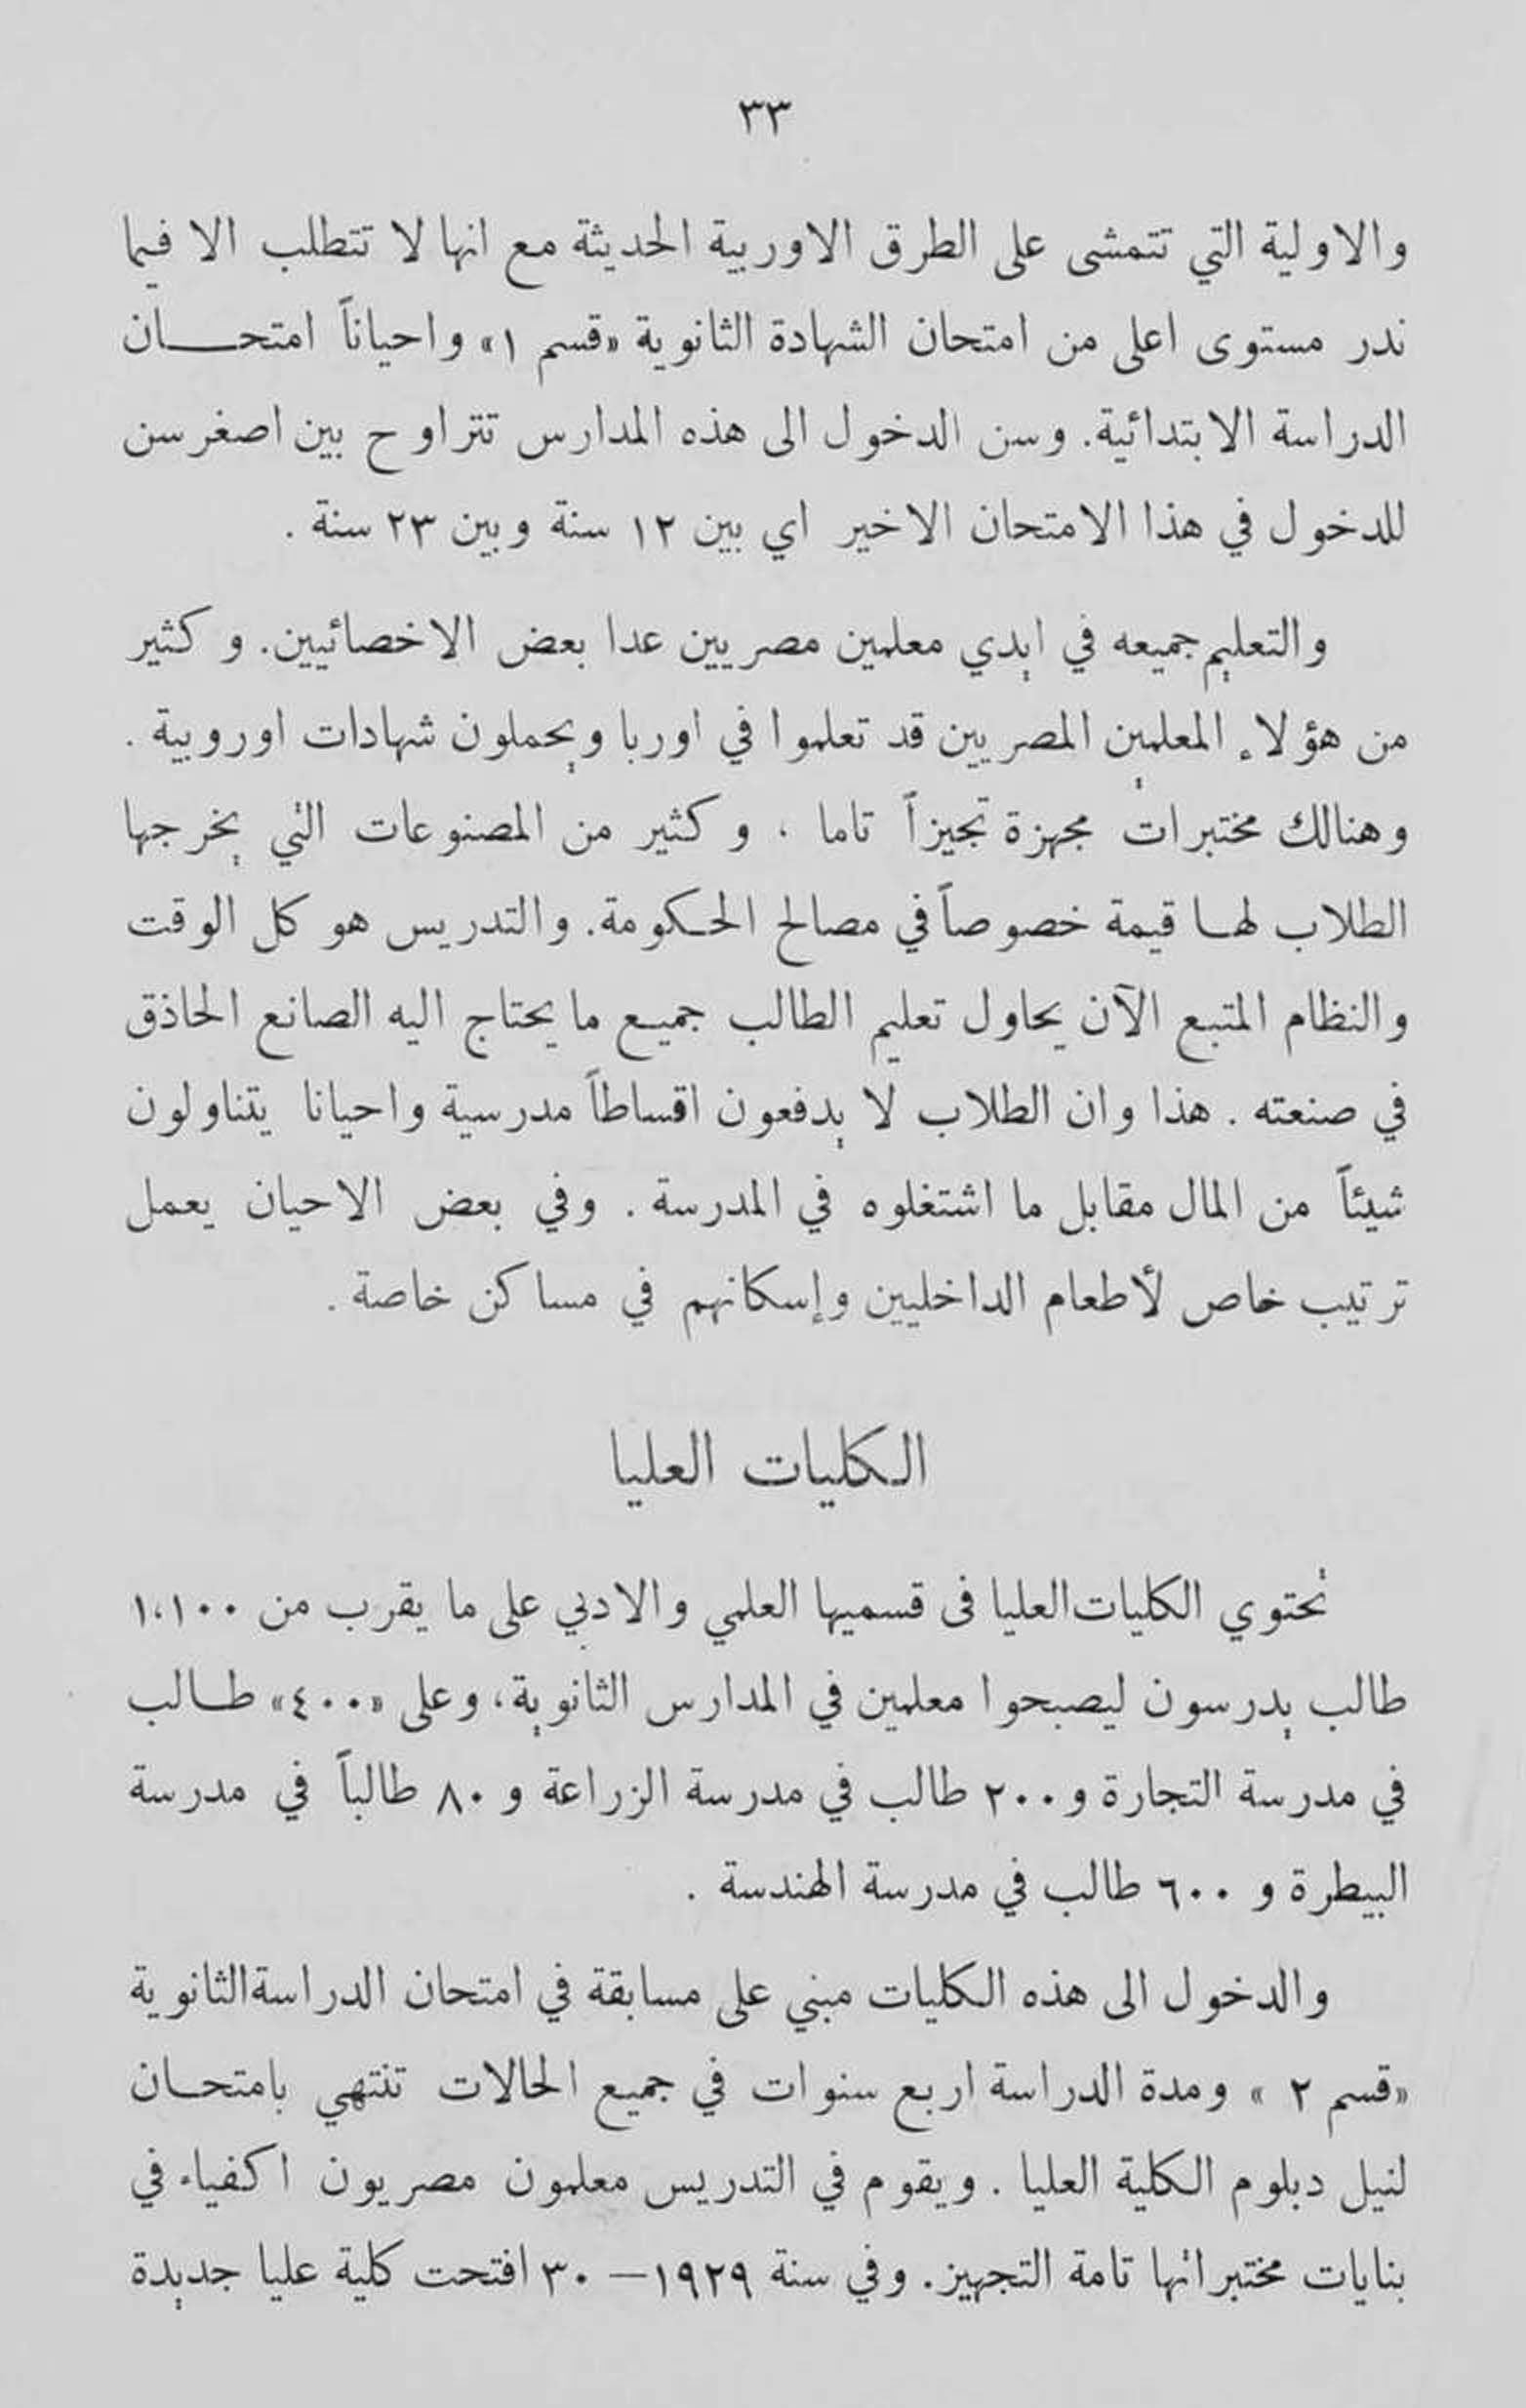 ٣٣
والاولية التي تتمشى على الطرق الاوربية الحديثة مع انها لا تتطلب الا فيما
ندر مستوى اعلى من امتحان الشهادة الثانوية «قسم ١» واحياناً امتحـــان
الدراسة الابتدائية. وسن الدخول الى هذه المدارس تتراوح بين اصغر سن
للدخول في هذا الامتحان الاخير اي بين ١٢ سنة وبين ٢٣ سنة .
والتعليم جميعه في ايدي معلمين مصريين عدا بعض الاخصائيين. وكثير
من هؤلاء المعلمين المصريين قد تعلموا في اوربا ويحملون شهادات اوروبية .
وهنالك مختبرات مجهزة تجيزاً تاما ، وكثير من المصنوعات التي يخرجها
الطلاب لهـا قيمة خصوصاً في مصالح الحكومة. والتدريس هو كل الوقت
والنظام المتبع الآن يحاول تعليم الطالب جميع ما يحتاج اليه الصانع الحاذق
في صنعته . هذا وان الطلاب لا يدفعون اقساطاً مدرسية واحيانا يتناولون
شيئاً من المال مقابل ما اشتغلوه في المدرسة . وفي بعض الاحيان يعمل
ترتيب خاص لأطعام الداخليين وإسكانهم في مساكن خاصة .
الكليات العليا
تحتوي الكليات العليا فى قسميها العلمي والادبي على ما يقرب من ١،١٠٠
طالب يدرسون ليصبحوا معلمين في المدارس الثانوية، وعلى «٤٠٠» طـالب
في مدرسة التجارة و٢٠٠ طالب في مدرسة الزراعة و ٨٠ طالباً في مدرسة
البيطرة و ٦٠٠ طالب في مدرسة الهندسة .
والدخول الى هذه الكليات مبني على مسابقة في امتحان الدراسة الثانوية
«قسم ٢ » ومدة الدراسة اربع سنوات في جميع الحالات تنتهي بامتحـان
لنيل دبلوم الكلية العليا . ويقوم في التدريس معلمون مصريون اكفياء في
بنايات مختبراتها تامة التجهيز. وفي سنة ١٩٢٩—٣٠ افتحت كلية عليا جديدة